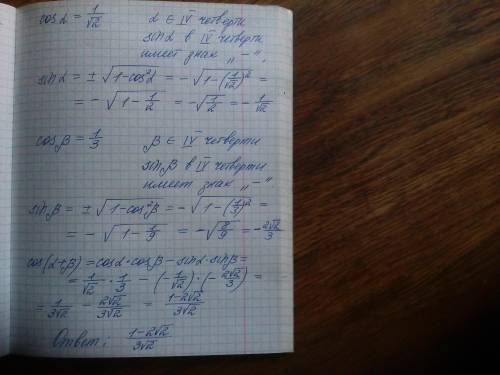 cosα = 1/√2     α ∈ IV четверти
sinα в IV четверти
имеет знак „−".
sinα = ± √(1−cos²α) = −√(1−(1/√2)²) =
= −√(1−1/2) = −√(1/2) = −1/√2
cosβ = 1/3     β ∈ IV четверти
sinβ в IV четверти
имеет знак „−"
sinβ = ± √(1−cos²β) = −√(1−(1/3)²) =
= −√(1−1/9) = −√(8/9) = −2√2/3
cos(α+β) = cosα·cosβ − sinα·sinβ =
= 1/√2 · 1/3 − (−1/√2)·(−2√2/3) =
= 1/3√2 − 2√2/3√2 = 1−2√2/3√2
Ответ: 1−2√2/3√2